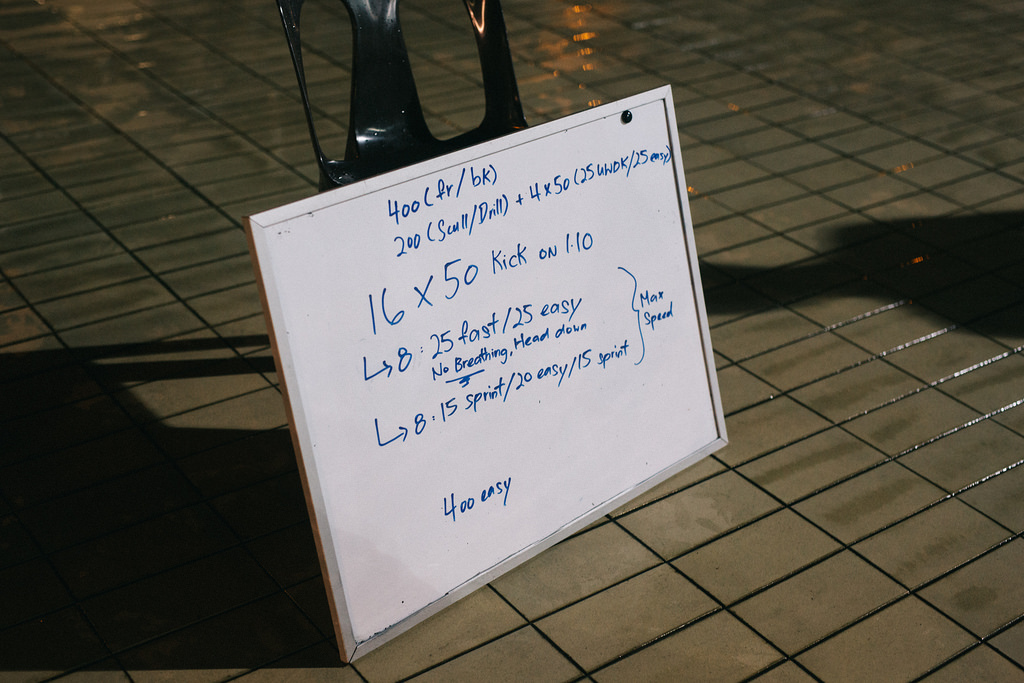 400 (fr/bk)
200 (Scull/Drill) + 4 x 50 (25 UWDK/25 easy)
16 x 50 Kick ON 1:10
↳ 8 : 25 fast/25 easy
No Breathing, Head down
↳ 8 : 15 sprint/20 easy/15 sprint
} Max
Speed
400 easy